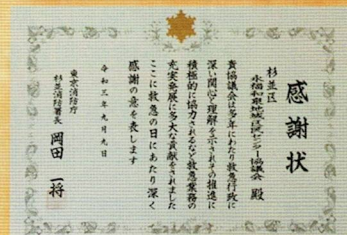 感謝状
杉並区
永福和泉地域区民センター協議会 殿
貴協議会は多年にわたり救急行政に
深い関心と理解を示されその推進に
積極的に協力されるなど救急業務の
充実発展に多大な貢献をされました
ここに救急の日にあたり深く
感謝の意を表します
令和三年九月九日
東京消防庁
杉並消防署長 岡田 一将